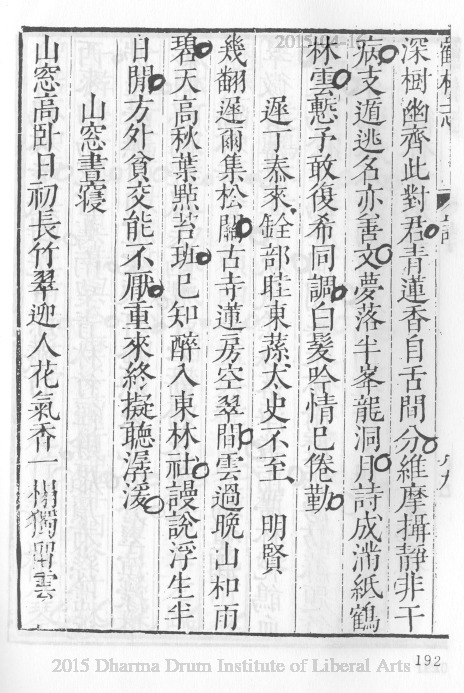 深樹幽齊此對君青蓮香自舌間分維摩攝靜非干
病支遁逃名亦善文夢落半峯龍洞月詩成滿紙鶴
林雲慙予敢復希同調白髮吟情已倦勤
遲丁泰來銓部眭東蓀太史不至 明賢
幾翻遲爾集松關古寺蓮房空翠間雲過晚山和雨
碧天高秋葉點苔班已知醉入東林社謾說浮生半
日閒方外貧交能不厭重來終擬聽潺湲
山窓晝寢
山窓高臥日初長竹翠迎人花氣香一榻獨留雲
192
2015 Dharma Drum Institute of Liberal Arts